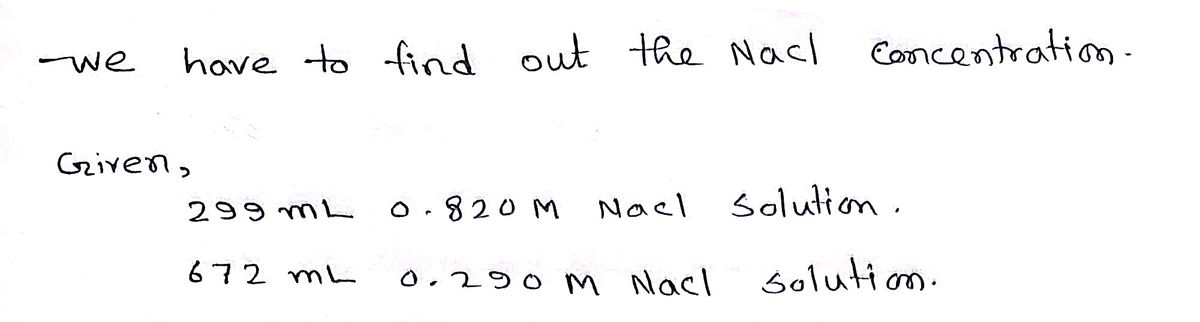 we have to find out the Nacl Concentration.
Given,
299 mL 0.820 M Nacl Solution.
672 mL 0.290 M Nacl solution.